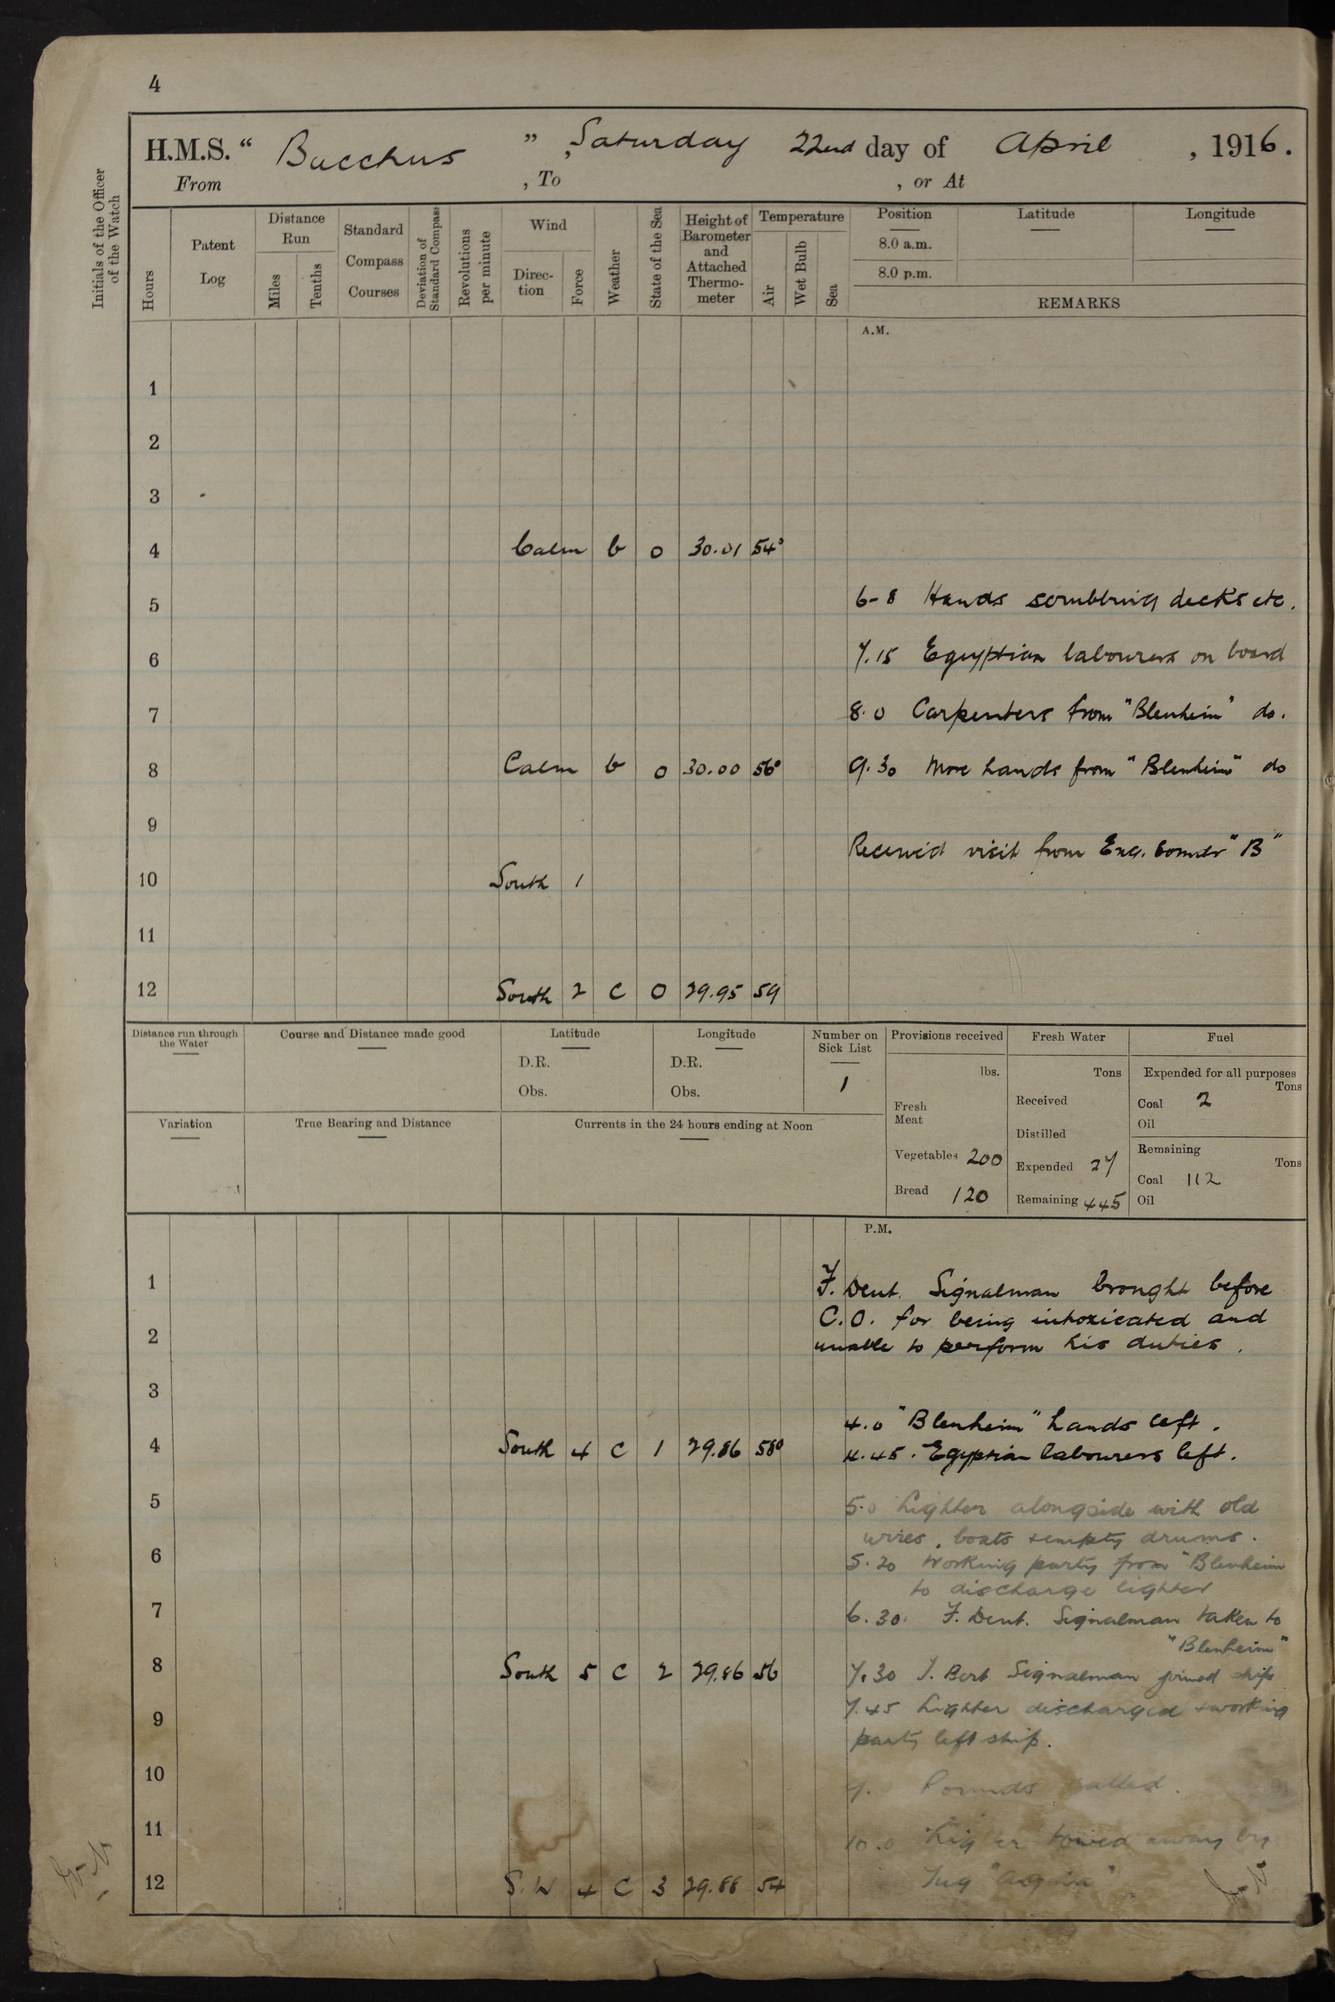 4
H.M.S. " Bacchus " , Saturday 22nd day of April , 1916.
From , To , or At
Initials of the Officer of the Watch
Hours
Patent Log
Distance Run
Miles
Tenths
Standard Compass Courses
Deviation of Standard Compass
Revolutions per minute
Wind
Direc-tion
Force
Weather
State of the Sea
Height of Barometer and Attached Thermo-meter
Temperature
Air
Wet Bulb
Sea
Position
8.0 a.m.
8.0 p.m.
Latitude
Longitude
REMARKS
A.M.
1
2
3
4 Calm b 0 30.01 54°
5 6-8 Hands scrubbing decks etc.
6 7.15 Egyptian labourers on board
7 8.0 Carpenters from "Blenheim" do.
8 Calm b 0 30.00 56° 9.30 More hands from "Blenheim" do
9
Received visit from Eng. Commdr "B"
10 South 1
11
12 South 2 C 0 29.95 59
Distance run through the Water
Course and Distance made good
Latitude
D.R.
Obs.
Longitude
D.R.
Obs.
Number on Sick List
1
Provisions received
lbs.
Fresh Meat
Vegetables 200
Bread 120
Fresh Water
Tons
Received
Distilled
Expended 27
Remaining 445
Fuel
Expended for all purposes
Tons
Coal 2
Oil
Remaining
Tons
Coal 112
Oil
Variation
True Bearing and Distance
Currents in the 24 hours ending at Noon
P.M.
1 F. Dent. Signalman brought before
C.O. for being intoxicated and
2 unable to perform his duties.
3
4.0 "Blenheim" hands left.
4 South 4 C 1 29.86 58° 4.45. Egyptian labourers left.
5 5.0 Lighter alongside with old
wires, boats & empty drums.
6 5.20 Working party from "Blenheim
to discharge lighter
7 6.30. F. Dent. Signalman taken to
"Blenheim"
8 South 5 C 2 29.86 56 7.30 J. Bert Signalman joined ship
9 7.45 Lighter discharged & working
party left ship.
10 9. Rounds called.
11 10.0 Lighter towed away by
12 S.W 4 C 3 29.88 54 Tug